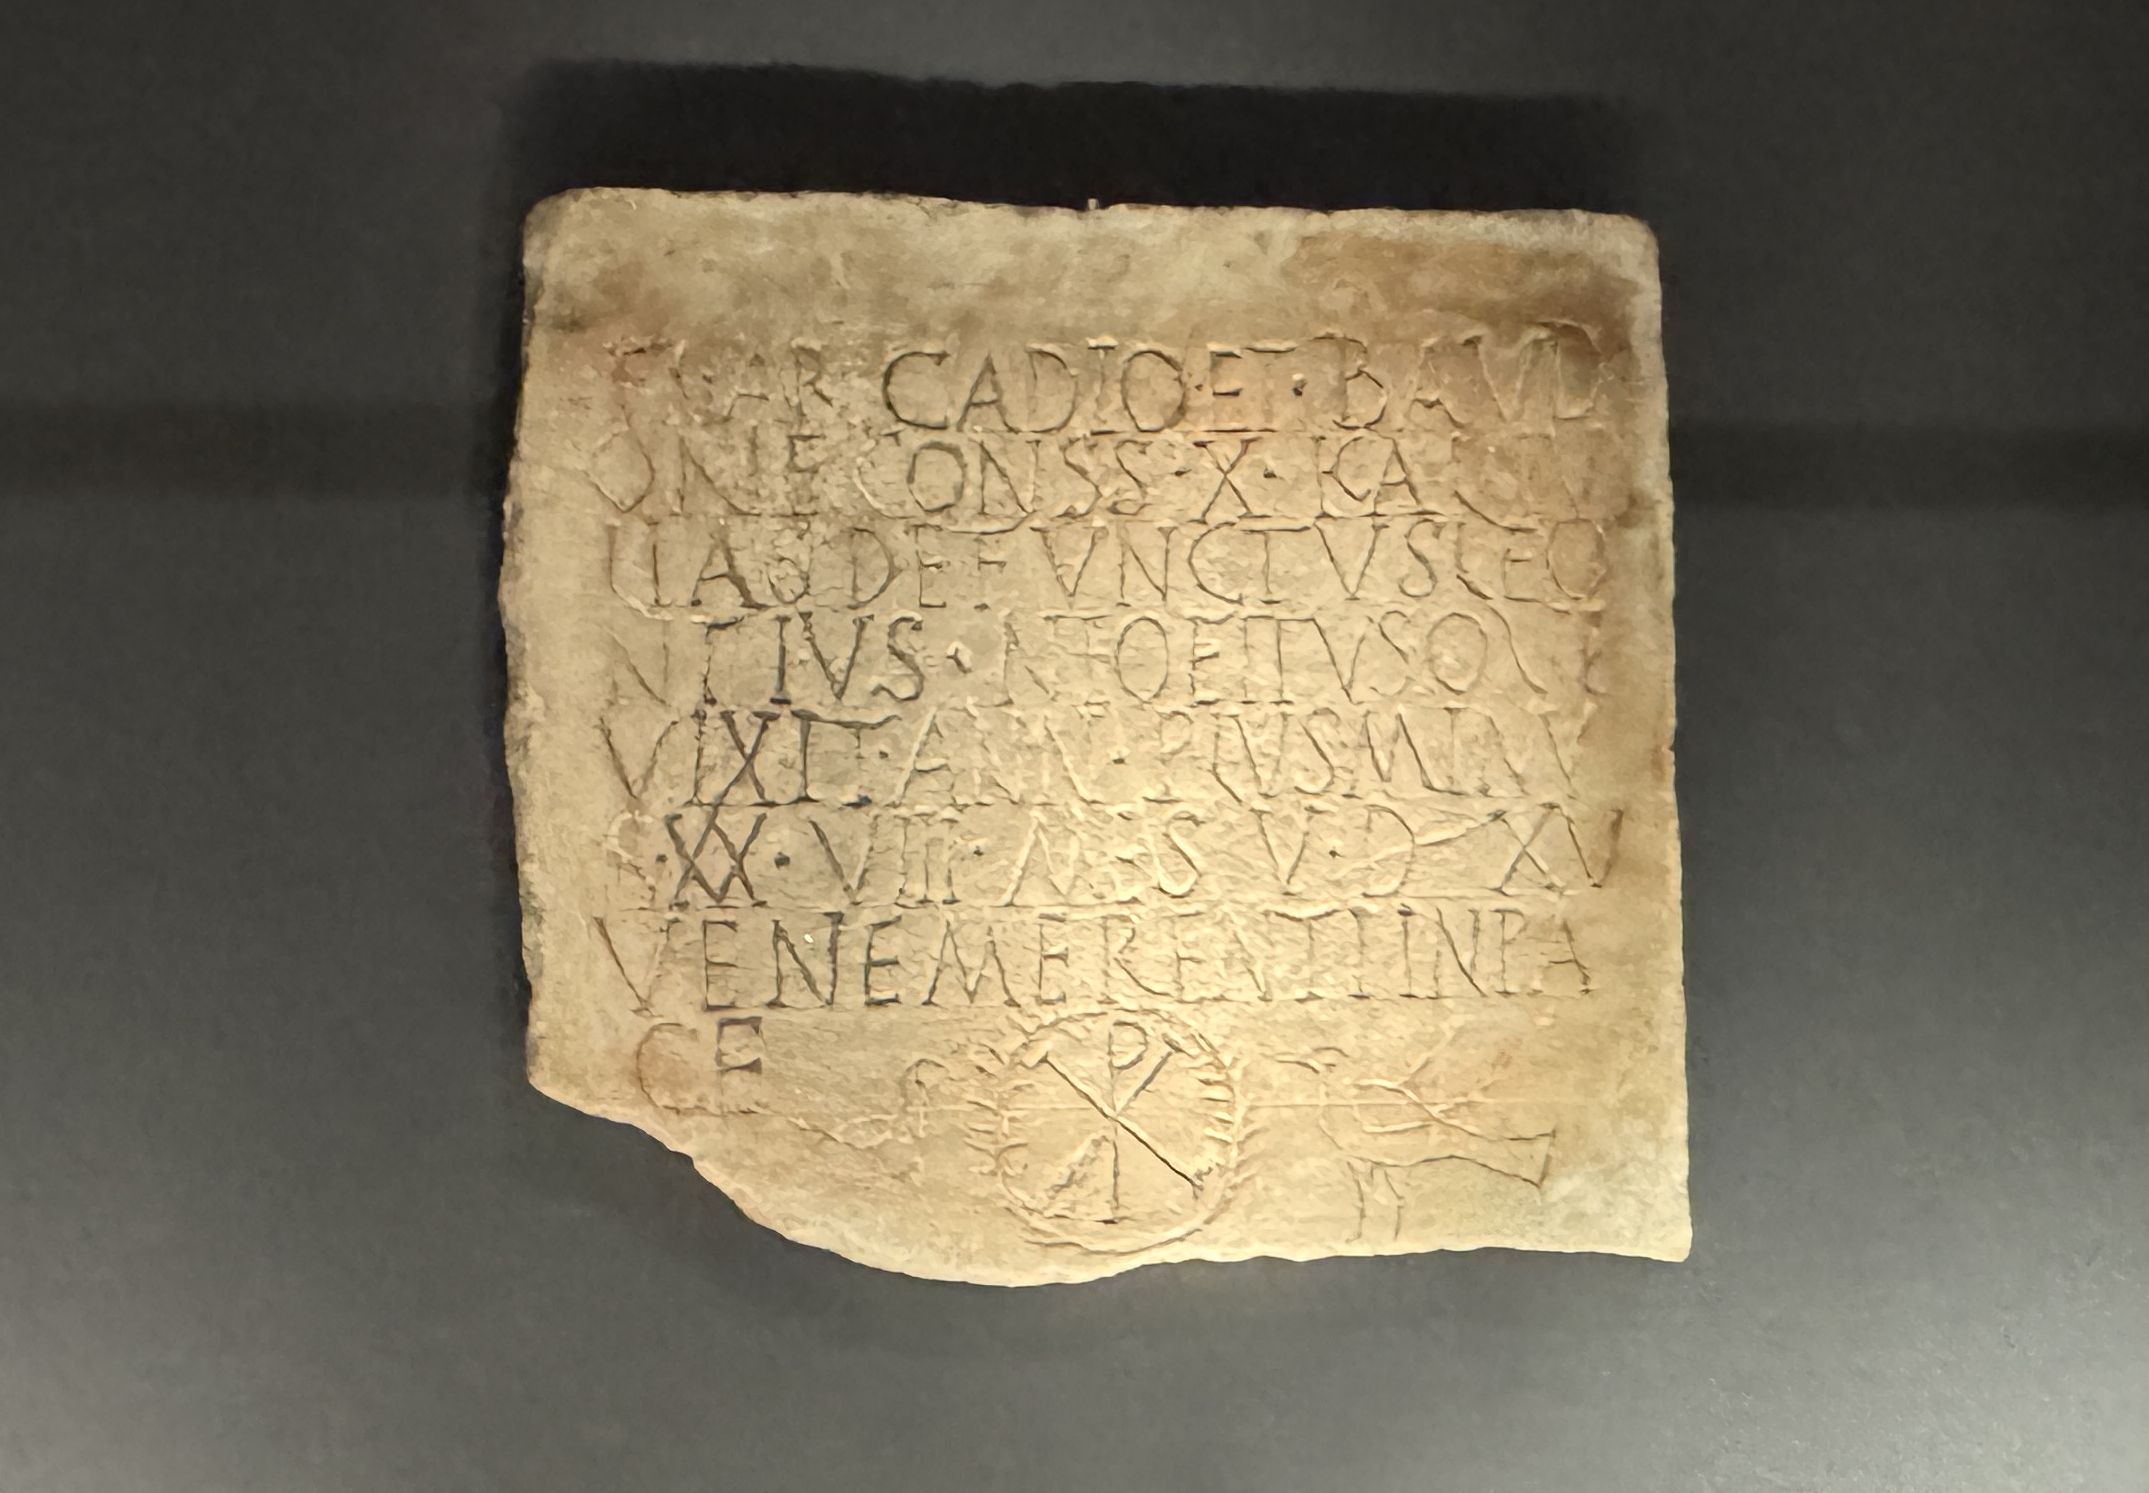 FL·ARCADIO·ET·BAVD
ONE CONSS·X·KAL
LIAS DEFVNCTVS LEO
NTIVS· QVI
VIXIT·ANN·PLVS MINV
S·XX·VIII·MES V·D XV
VENEMERENTI IN PA
CE